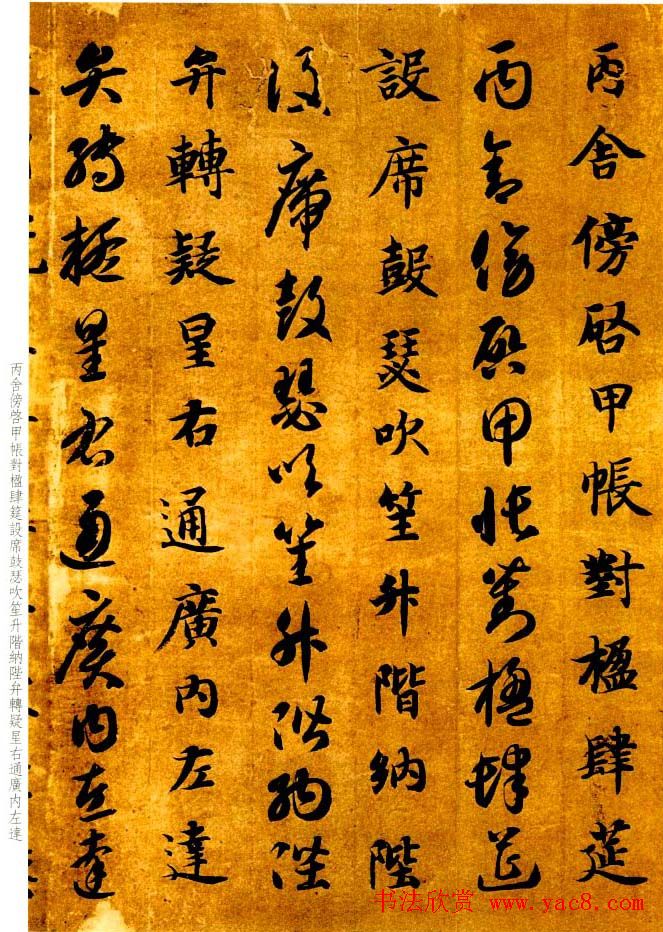 丙舍傍啓甲帳對楹肆莚
丙舍傍啓甲帳對楹肆莚
設席鼓瑟吹笙升階納陛
設席鼓瑟吹笙升階納陛
弁轉疑星右通廣内左達
弁轉疑星右通廣内左達
丙舍傍啓甲帳對楹肆筵設席鼓瑟吹笙升階納陛弁轉疑星右通廣内左達
书法欣赏 www.yac8.com